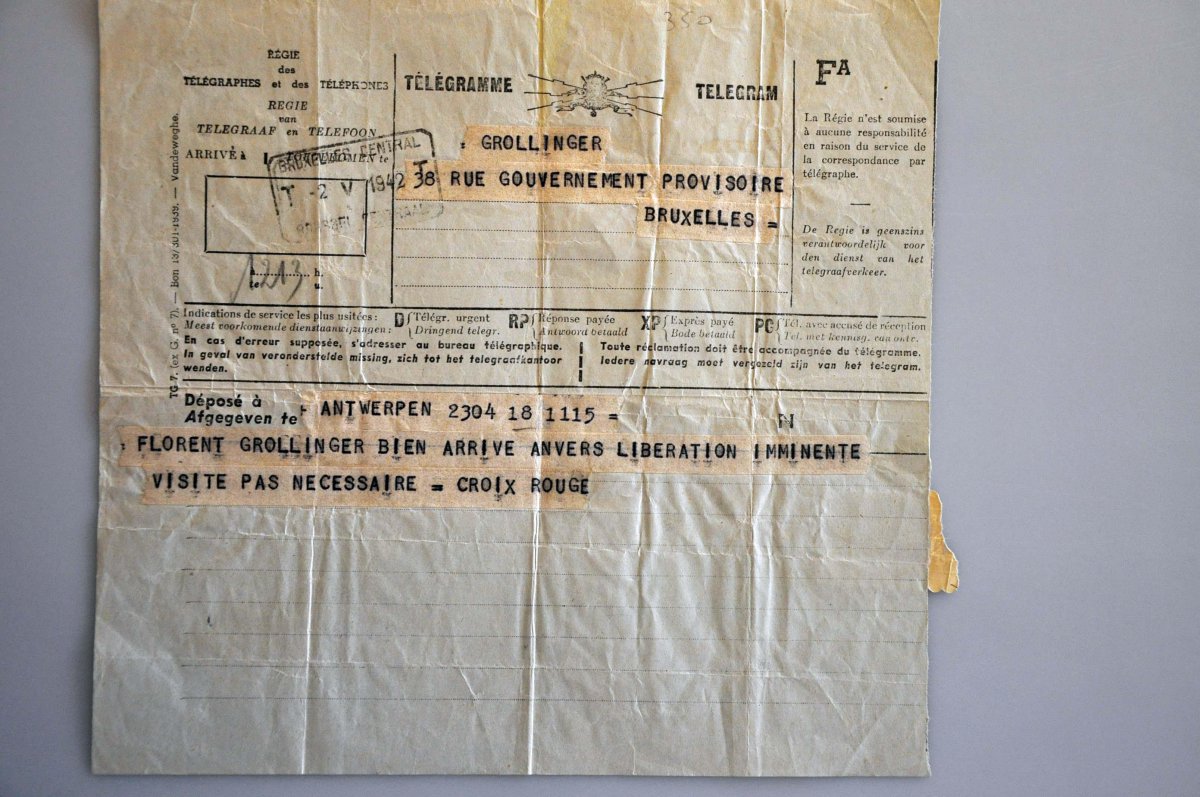 350
RÉGIE
des
TÉLÉGRAPHES et des TÉLÉPHONES
REGIE
van
TELEGRAAF en TELEFOON
ARRIVÉ à
BRUXELLES CENTRAL
T -2 V 1942 T
1213
h.
te u.
TÉLÉGRAMME TELEGRAM
: GROLLINGER
38 RUE GOUVERNEMENT PROVISOIRE
BRUXELLES =
FA
La Régie n'est soumise
à aucune responsabilité
en raison du service de
la correspondance par
télégraphe.
De Regie is geenszins
verantwoordelijk voor
den dienst van het
telegraafverkeer.
TG 7. (ex G. n° 7). — Bon 137301-1939. — Vandeweghe.
Indications de service les plus usitées : D Télégr. urgent RP Réponse payée XP Exprès payé PC Tél. avec accusé de réception
Meest voorkomende dienstaanwijzingen : Dringend telegr. Antwoord betaald Bode betaald Tel. met kennisg. van ontv.
En cas d'erreur supposée, s'adresser au bureau télégraphique.
In geval van veronderstelde missing, zich tot het telegraafkantoor
wenden.
Toute réclamation doit être accompagnée du télégramme.
Iedere navraag moet vergezeld zijn van het telegram.
Déposé à
Afgegeven te
ANTWERPEN 2304 18 1115 =
N
: FLORENT GROLLINGER BIEN ARRIVE ANVERS LIBERATION IMMINENTE
VISITE PAS NECESSAIRE = CROIX ROUGE